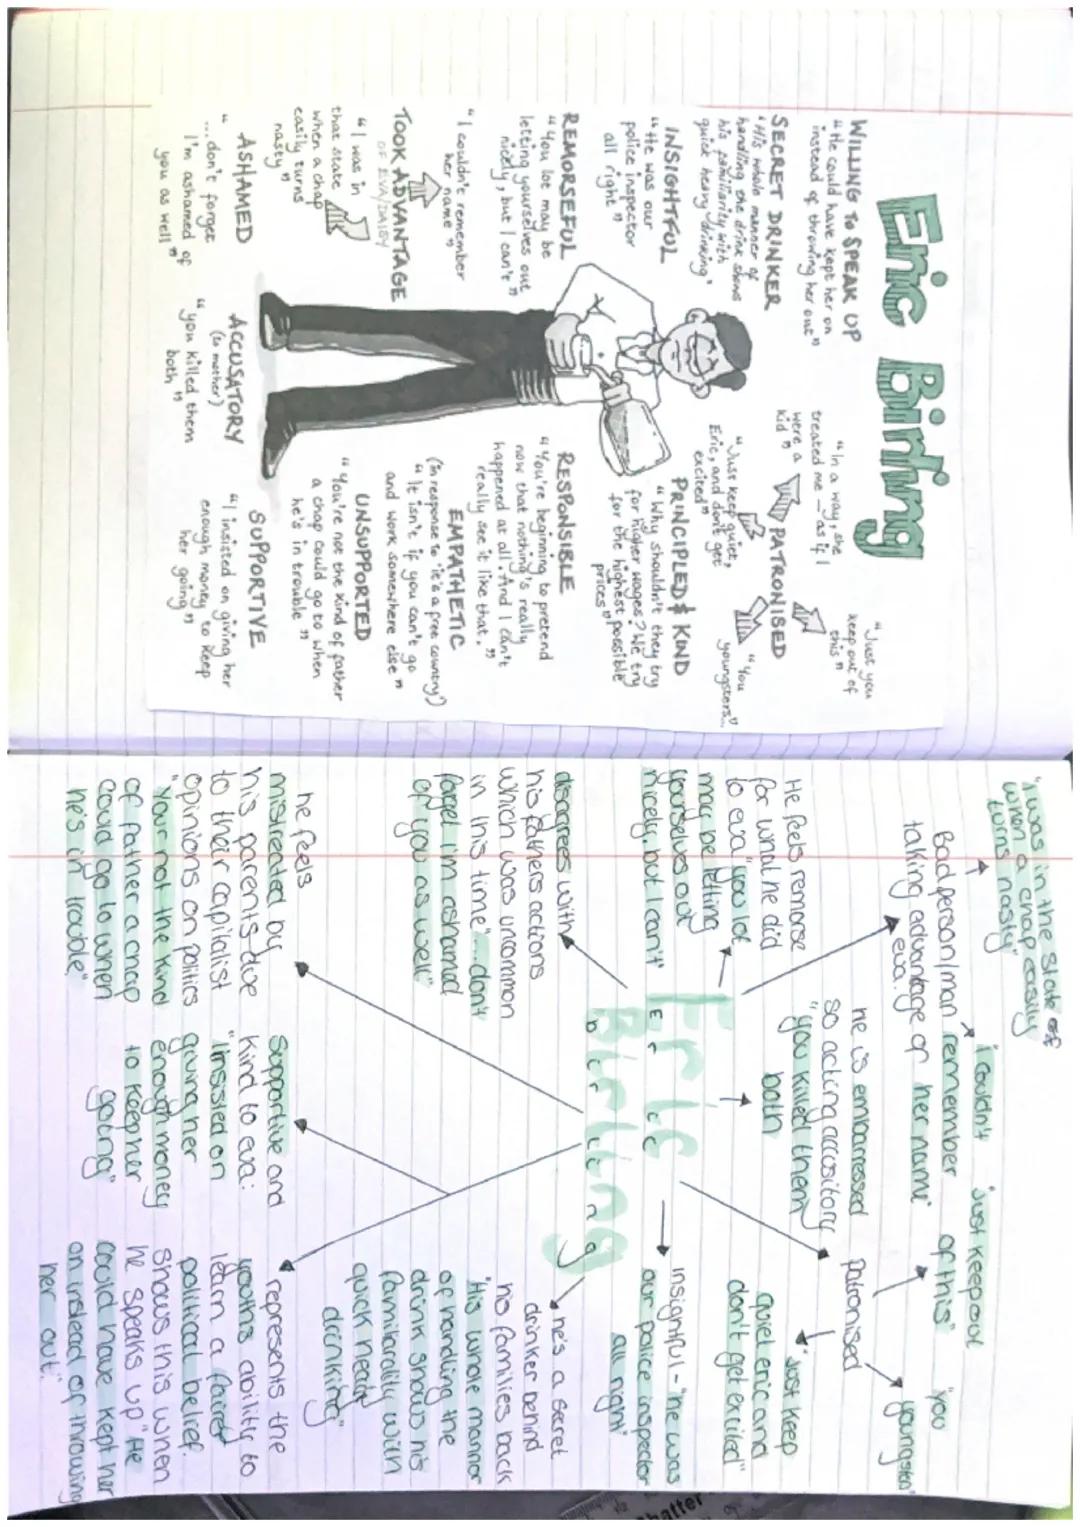 Eric Birling
WILLING TO SPEAK UP
"He could have kept her on
instead of throwing her out"
SECRET DRINKER
"His whole manner of
handling the drink shows
his familiarity with
quick heavy drinking"
INSIGHTFUL
"He was our
police inspector
all right"
REMORSEFUL
"You lot may be
letting yourselves out
nicely, but I can't"
"I couldn't remember
her name"
TOOK ADVANTAGE
OF EVA/DAISY
"I was in
that state
when a chap
easily turns
nasty"
ASHAMED
"...don't forget
I'm ashamed of
you as well"
ACCUSATORY
(to mother)
"you killed them
both"
"In a way, she
treated me - as if I
were a
kid"
"Just you
keep out of
this"
PATRONISED
"Just keep quiet,
Eric, and don't get
excited"
"You
youngsters..."
PRINCIPLED & KIND
"Why shouldn't they try
for higher wages? We try
for the highest possible
prices"
RESPONSIBLE
"You're beginning to pretend
now that nothing's really
happened at all. And I can't
really see it like that."
EMPATHETIC
(in response to 'it's a free country')
"It isn't if you can't go
and work somewhere else"
UNSUPPORTED
"You're not the kind of father
a chap could go to when
he's in trouble"
SUPPORTIVE
"I insisted on giving her
enough money to keep
her going"
"I was in the state of
when a chap easily
turns nasty"
Bad person/man
taking advantage of
eva.
"I couldn't
remember
her name"
"Just keep out
of this"
"you
youngsters"
Patronised
"Just keep
quiet eric and
don't get excited"
he is embarressed
so acting accusitory
"you killed them
both
He feels remorse
for what he did
to eva "you lot
may be letting
yourselves out
nicely, but I can't"
Eric
Birling
Eric
birling
insightful - "he was
our police inspector
all right"
disagrees with
his fathers actions
which was uncommon
in this time "...don't
forget i'm ashamed
of you as well"
he's a secret
drinker behind
his families back
"His whole manor
of handling the
drink shows his
familiarality with
quick heavy
drinking"
he feels
mistreated by
his parents due
to their capitalist
opinions on politics
"your not the kind
of father a chap
could go to when
he's in trouble"
Supportive and
Kind to eva:
"I insisted on
giving her
enough money
to keep her
going"
represents the
youths ability to
learn a
political belief.
Shows this when
he speaks up "He
could have kept her
on instead of throwing
her out".